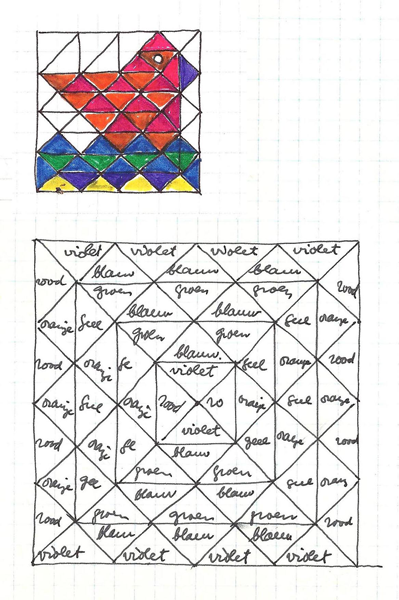 violet violet violet violet
blauw blauw blauw
rood groen groen groen rood
blauw blauw
oranje geel geel oranje
groen groen
blauw.
rood oranje ge violet geel oranje rood
oranje geel oranje rood ro oranje geel oranje
violet
rood oranje ge geel oranje rood
blauw
groen groen
oranje gee geel oranj
blauw blauw
rood groen groen groen rood
blauw blauw blauw
violet violet violet violet